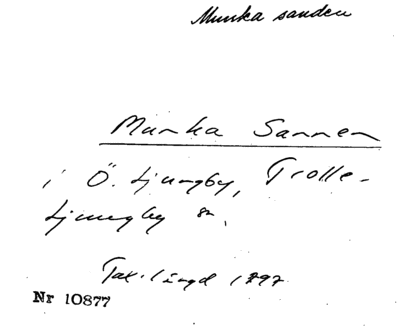 Munka sanden
Munka Sannen
i Ö. Ljungby, Trolle-
Ljungby sn.
Tax. längd 1797
Nr 10877